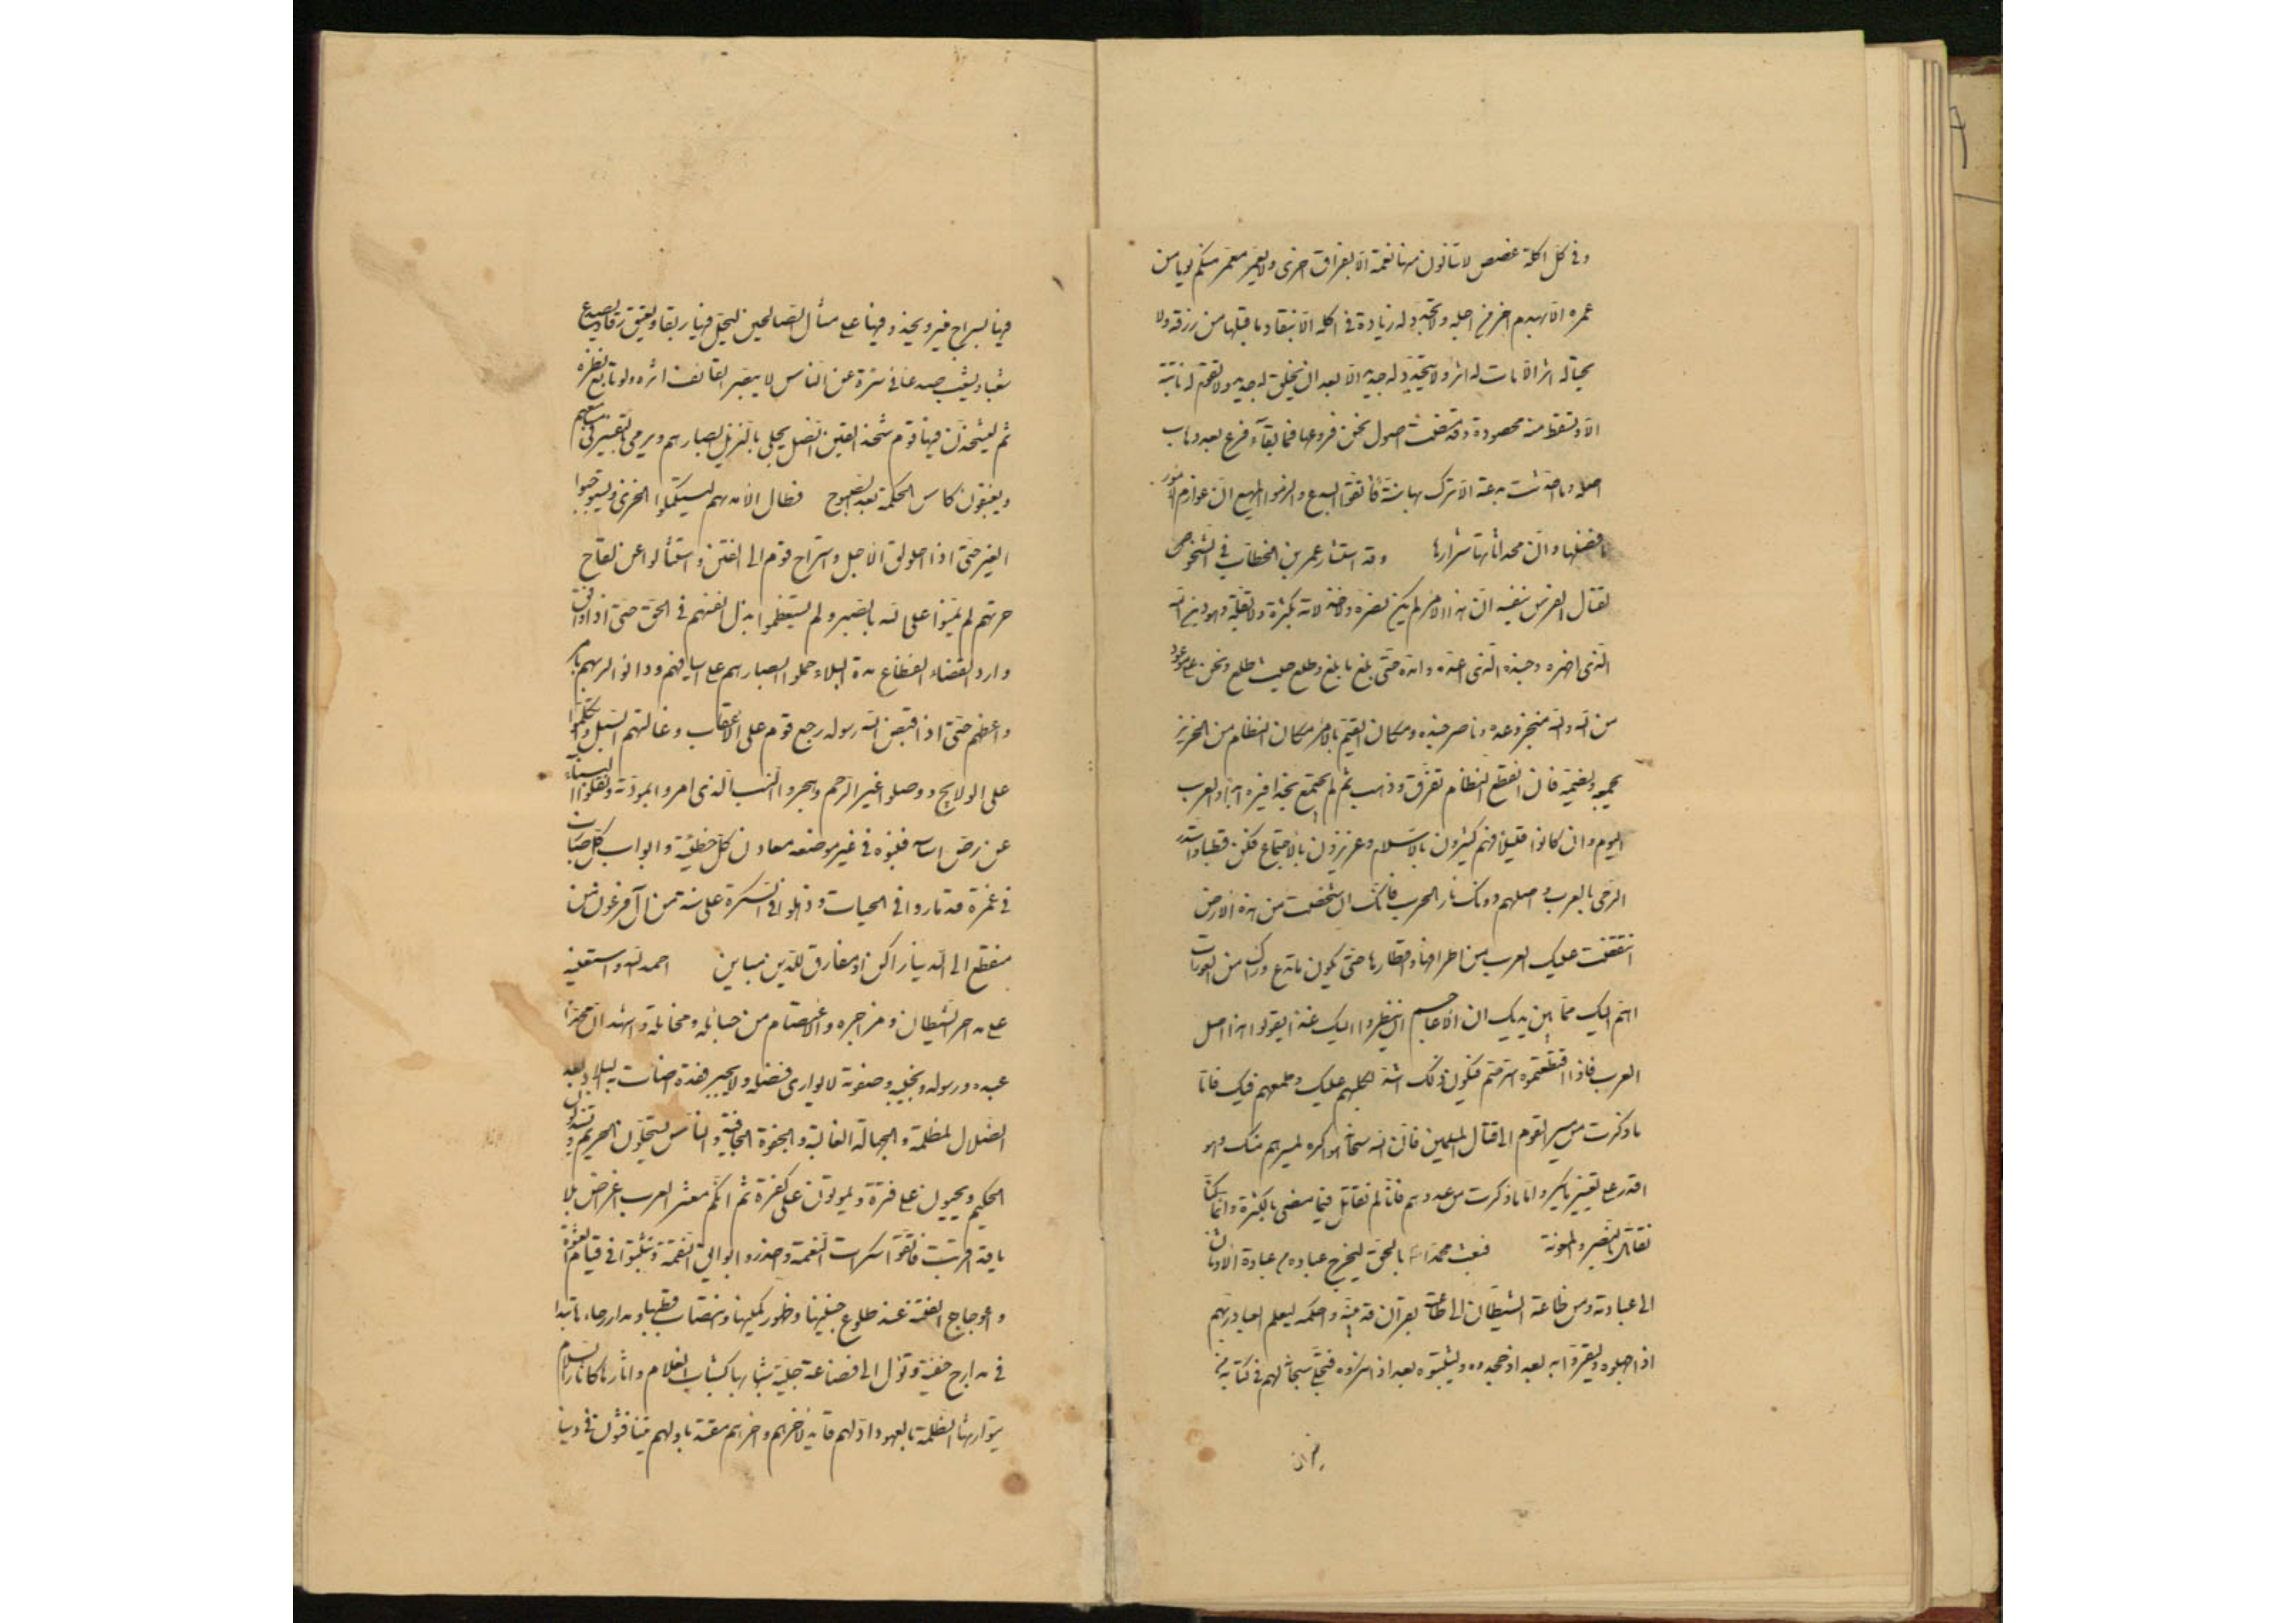 وفى كل اكلة غصص لا تنالون منها نعمة الا بفراق اخرى ولا يعمر معمر منكم يوما من
عمره الا بهدم اخر من اجله ولا تجدد له زيادة فى اكله الا بنفاد ما قبلها من رزقه ولا
يحيا له اثر الا مات له اثر ولا يتجدد له جديد الا بعد ان يخلق له جديد ولا تقوم له نابتة
الا وتسقط منه محصودة وقد مضت اصول نحن فروعها فما بقاء فرع بعد ذهاب
اصله وما احدثت بدعة الا ترك بها سنة فاتقوا البدع والزموا المهيع ان عوازم الامور
افضلها وان محدثاتها شرارها وقد استشار عمر بن الخطاب فى الشخوص
لقتال الفرس بنفسه ان هذا الامر لم يكن نصره ولا خذلانه بكثرة ولا بقلة وهو دين الله
الذى اظهره وجنده الذى اعده وامده حتى بلغ ما بلغ وطلع حيث طلع ونحن على موعود
من الله والله منجز وعده وناصر جنده ومكان القيم بالامر مكان النظام من الخرز
يجمعه ويضمه فان انقطع النظام تفرق وذهب ثم لم يجتمع بحذافيره ابدا والعرب
اليوم وان كانوا قليلا فهم كثيرون بالاسلام وعزيزون بالاجتماع فكن قطبا واستدر
الرحى بالعرب واصلهم دونك نار الحرب فانك ان شخصت من هذه الارض
انتقضت عليك العرب من اطرافها واقطارها حتى يكون ما تدع وراك من العورات
اهم اليك مما بين يديك ان الاعاجم ان ينظروا اليك غدا يقولوا هذا اصل
العرب فاذا اقتطعتموه استرحتم فيكون ذلك اشد لكلبهم عليك وطمعهم فيك فاما
ما ذكرت من سير القوم الى قتال المسلمين فان الله سبحانه هو اكره لمسيرهم منك وهو
اقدر على تغيير ما يكره واما ما ذكرت من عددهم فانا لم نقاتل فيما مضى بالكثرة وانما كنا
نقاتل بالنصر والمعونة فبعث محمدا بالحق ليخرج عباده من عبادة الاوثان
الى عبادته ومن طاعة الشيطان الى طاعته بقرآن قد بينه واحكمه ليعلم العباد ربهم
اذا جهلوه وليقروا به بعد اذ جحدوه وليثبتوه بعد اذ انكروه فتجلى سبحانه لهم فى كتابه من
فيها بسراج منير ويحذو فيها على مثال الصالحين ليحل فيها ربقا ويعتق رقا ويصدع
شعبا ويشعب صدعا فى سترة عن الناس لا يبصر القائف اثره ولو تابع نظره
ثم ليشحذن فيها قوم شحذ القين النصل يجلى بالتنزيل ابصارهم ويرمى بالتفسير فى مسامعهم
ويغبقون كاس الحكمة بعد الصبوح فطال الامد بهم ليستكملوا الخزى ويستوجبوا
الغير حتى اذا اخلولق الاجل واستراح قوم الى الفتن واشتالوا عن لقاح
حربهم لم يمنوا على الله بالصبر ولم يستعظموا بذل انفسهم فى الحق حتى اذا وافق
وارد القضاء انقطاع مدة البلاء حملوا بصائرهم على اسيافهم ودانوا لربهم بامر
واعظهم حتى اذا قبض الله رسوله رجع قوم على الاعقاب وغالتهم السبل واتكلوا
على الولايج ووصلوا غير الرحم وهجروا السبب الذى امروا بمودته ونقلوا البناء
عن رص اساسه فبنوه فى غير موضعه معادن كل خطيئة وابواب كل ضارب
فى غمرة قد ماروا فى الحيرة وذهلوا فى السكرة على سنة من آل فرعون من
منقطع الى الدنيا راكن او مفارق للدين مباين احمد الله واستعينه
على مداحر الشيطان ومزاجره والاعتصام من حبائله ومخاتله واشهد ان محمدا
عبده ورسوله ونجيبه وصفوته لا يوازى فضله ولا يجبر فقده اضاءت به البلاد بعد
الضلال المظلمة والجهالة الغالبة والجفوة الجافية والناس يستحلون الحريم ويستذلون
الحكيم ويحيون على فترة ويموتون على كفرة ثم انكم معشر العرب اغراض بلايا
قد اقتربت فاتقوا سكرات النعمة واحذروا بوائق النقمة وتثبتوا فى قتام العشوة
واعوجاج الفتنة عند طلوع جنينها وظهور كمينها وانتصاب قطبها ومدار رحاها تبدا
فى مدارج خفية وتؤل الى فظاعة جلية شبابها كشباب الغلام واثارها كاثار السلام
يتوارثها الظلمة بالعهود اولهم قائد لاخرهم واخرهم مقتد باولهم يتنافسون فى دنيا